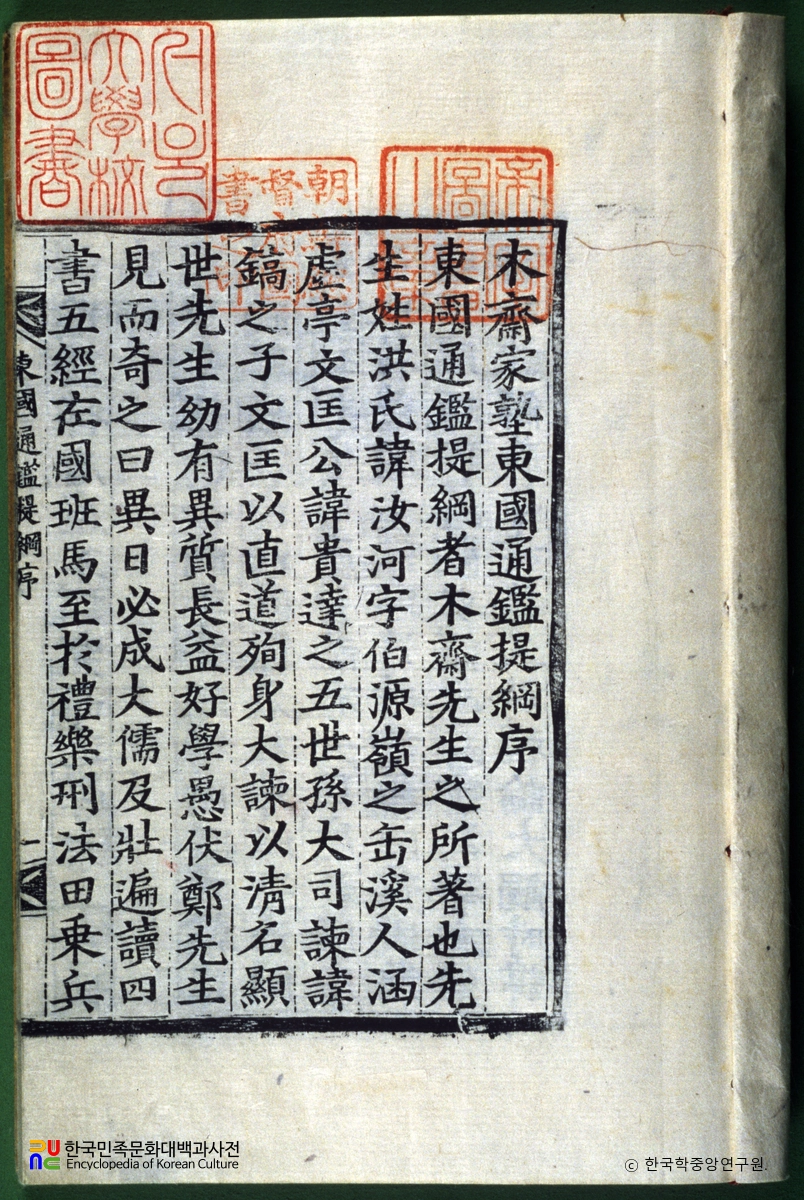 木齋家塾東國通鑑提綱序
東國通鑑提綱者木齋先生之所著也先
生姓洪氏諱汝河字伯源嶺之缶溪人涵
虛亭文匡公諱貴達之五世孫大司諫諱
鎬之子文匡以直道殉身大諫以清名顯
世先生幼有異質長益好學愚伏鄭先生
見而奇之曰異日必成大儒及壯遍讀四
書五經在國班馬至於禮樂刑法田乗兵
東國通鑑提綱序 一
서울
大學校
圖書
帝室
圖書
之章
한국민족문화대백과사전
Encyclopedia of Korean Culture
ⓒ 한국학중앙연구원